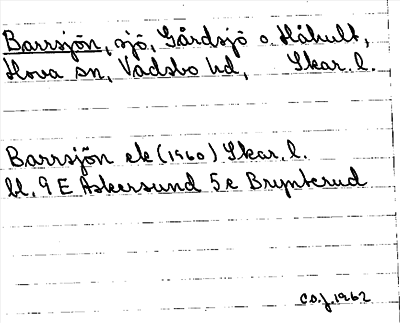 Barrsjön, sjö, Gårdsjö o. Håhult,
Hova sn, Vadsbo hd, Skar. l.
Barrsjön ek (1960) Skar. l.
bl. 9 E Askersund 5 e Brynterud
C.O.J. 1962